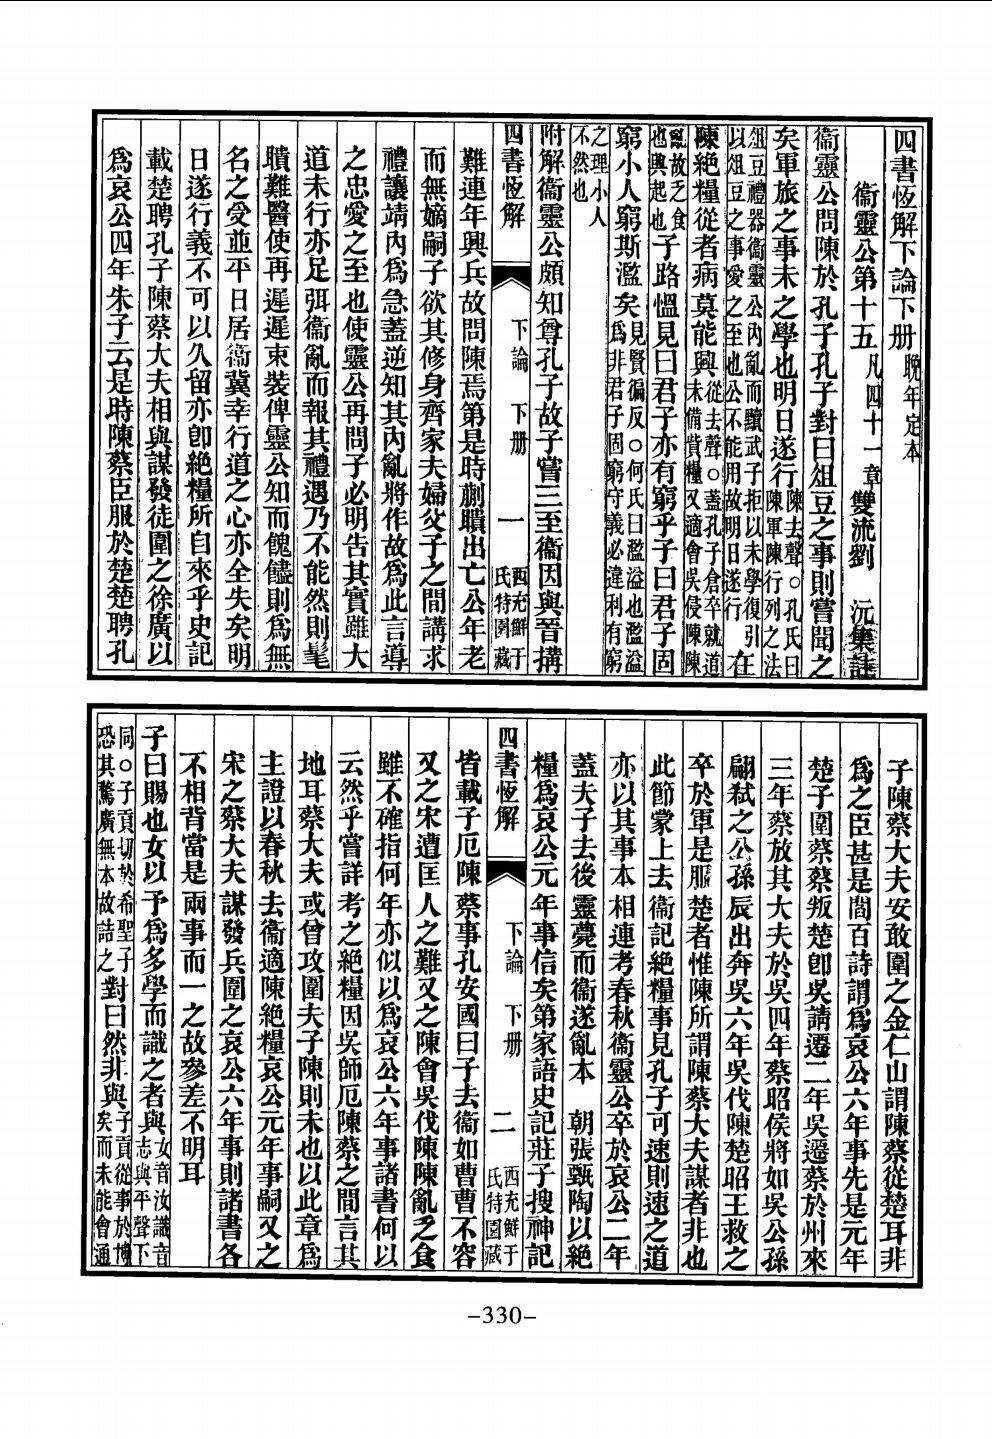 四書恆解下論下册晚年定本
衞靈公第十五凡四十一章 雙流劉 沅集註
衞靈公問陳於孔子孔子對曰俎豆之事則嘗聞之
矣軍旅之事未之學也明日遂行陳去聲○孔氏曰陳軍陳行列之法
俎豆禮器衞靈公內亂而黷武子拒以未學復引以俎豆之事愛之至也公不能用故明日遂行 在
陳絕糧從者病莫能興從去聲○蓋孔子倉卒就道未備貲糧又適會吳侵陳陳
亂故乏食也興起也子路慍見曰君子亦有窮乎子曰君子固
窮小人窮斯濫矣見賢徧反○何氏曰濫溢也濫溢爲非君子固窮守義必違利有窮
之理小人不然也
附解衞靈公頗知尊孔子故子嘗三至衞因與晉搆
四書恆解 下論 下册 一 西充鮮于氏特園藏
難連年興兵故問陳焉第是時蒯聵出亡公年老
而無嫡嗣子欲其修身齊家夫婦父子之間講求
禮讓靖內爲急蓋逆知其內亂將作故爲此言導
之忠愛之至也使靈公再問子必明告其實雖大
道未行亦足弭衞亂而報其禮遇乃不能然則髦
聵難醫使再遲遲束裝俾靈公知而餽饚則爲無
名之受並平日居衞冀幸行道之心亦全失矣明
日遂行義不可以久留亦卽絕糧所自來乎史記
載楚聘孔子陳蔡大夫相與謀發徒圍之徐廣以
爲哀公四年朱子云是時陳蔡臣服於楚楚聘孔
子陳蔡大夫安敢圍之金仁山謂陳蔡從楚耳非
爲之臣甚是閻百詩謂爲哀公六年事先是元年
楚子圍蔡蔡叛楚卽吳請遷二年吳遷蔡於州來
三年蔡放其大夫於吳四年蔡昭侯將如吳公孫
翩弒之公孫辰出奔吳六年吳伐陳楚昭王救之
卒於軍是服楚者惟陳所謂陳蔡大夫謀者非也
此節蒙上去衞記絕糧事見孔子可速則速之道
亦以其事本相連考春秋衞靈公卒於哀公二年
蓋夫子去後靈薨而衞遂亂本 朝張甄陶以絕
糧爲哀公元年事信矣第家語史記莊子搜神記
四書恆解 下論 下册 二 西充鮮于氏特園藏
皆載子厄陳蔡事孔安國曰子去衞如曹曹不容
又之宋遭匡人之難又之陳會吳伐陳陳亂乏食
雖不確指何年亦似以爲哀公六年事諸書何以
云然乎嘗詳考之絕糧因吳師厄陳蔡之間言其
地耳蔡大夫或曾攻圍夫子陳則未也以此章爲
主證以春秋去衞適陳絕糧哀公元年事嗣又之
宋之蔡大夫謀發兵圍之哀公六年事則諸書各
不相背當是兩事而一之故參差不明耳
子曰賜也女以予爲多學而識之者與女音汝識音志與平聲下
同○子貢切於希聖子恐其騖廣無本故詰之對曰然非與子貢從事於博矣而未能會通
-330-